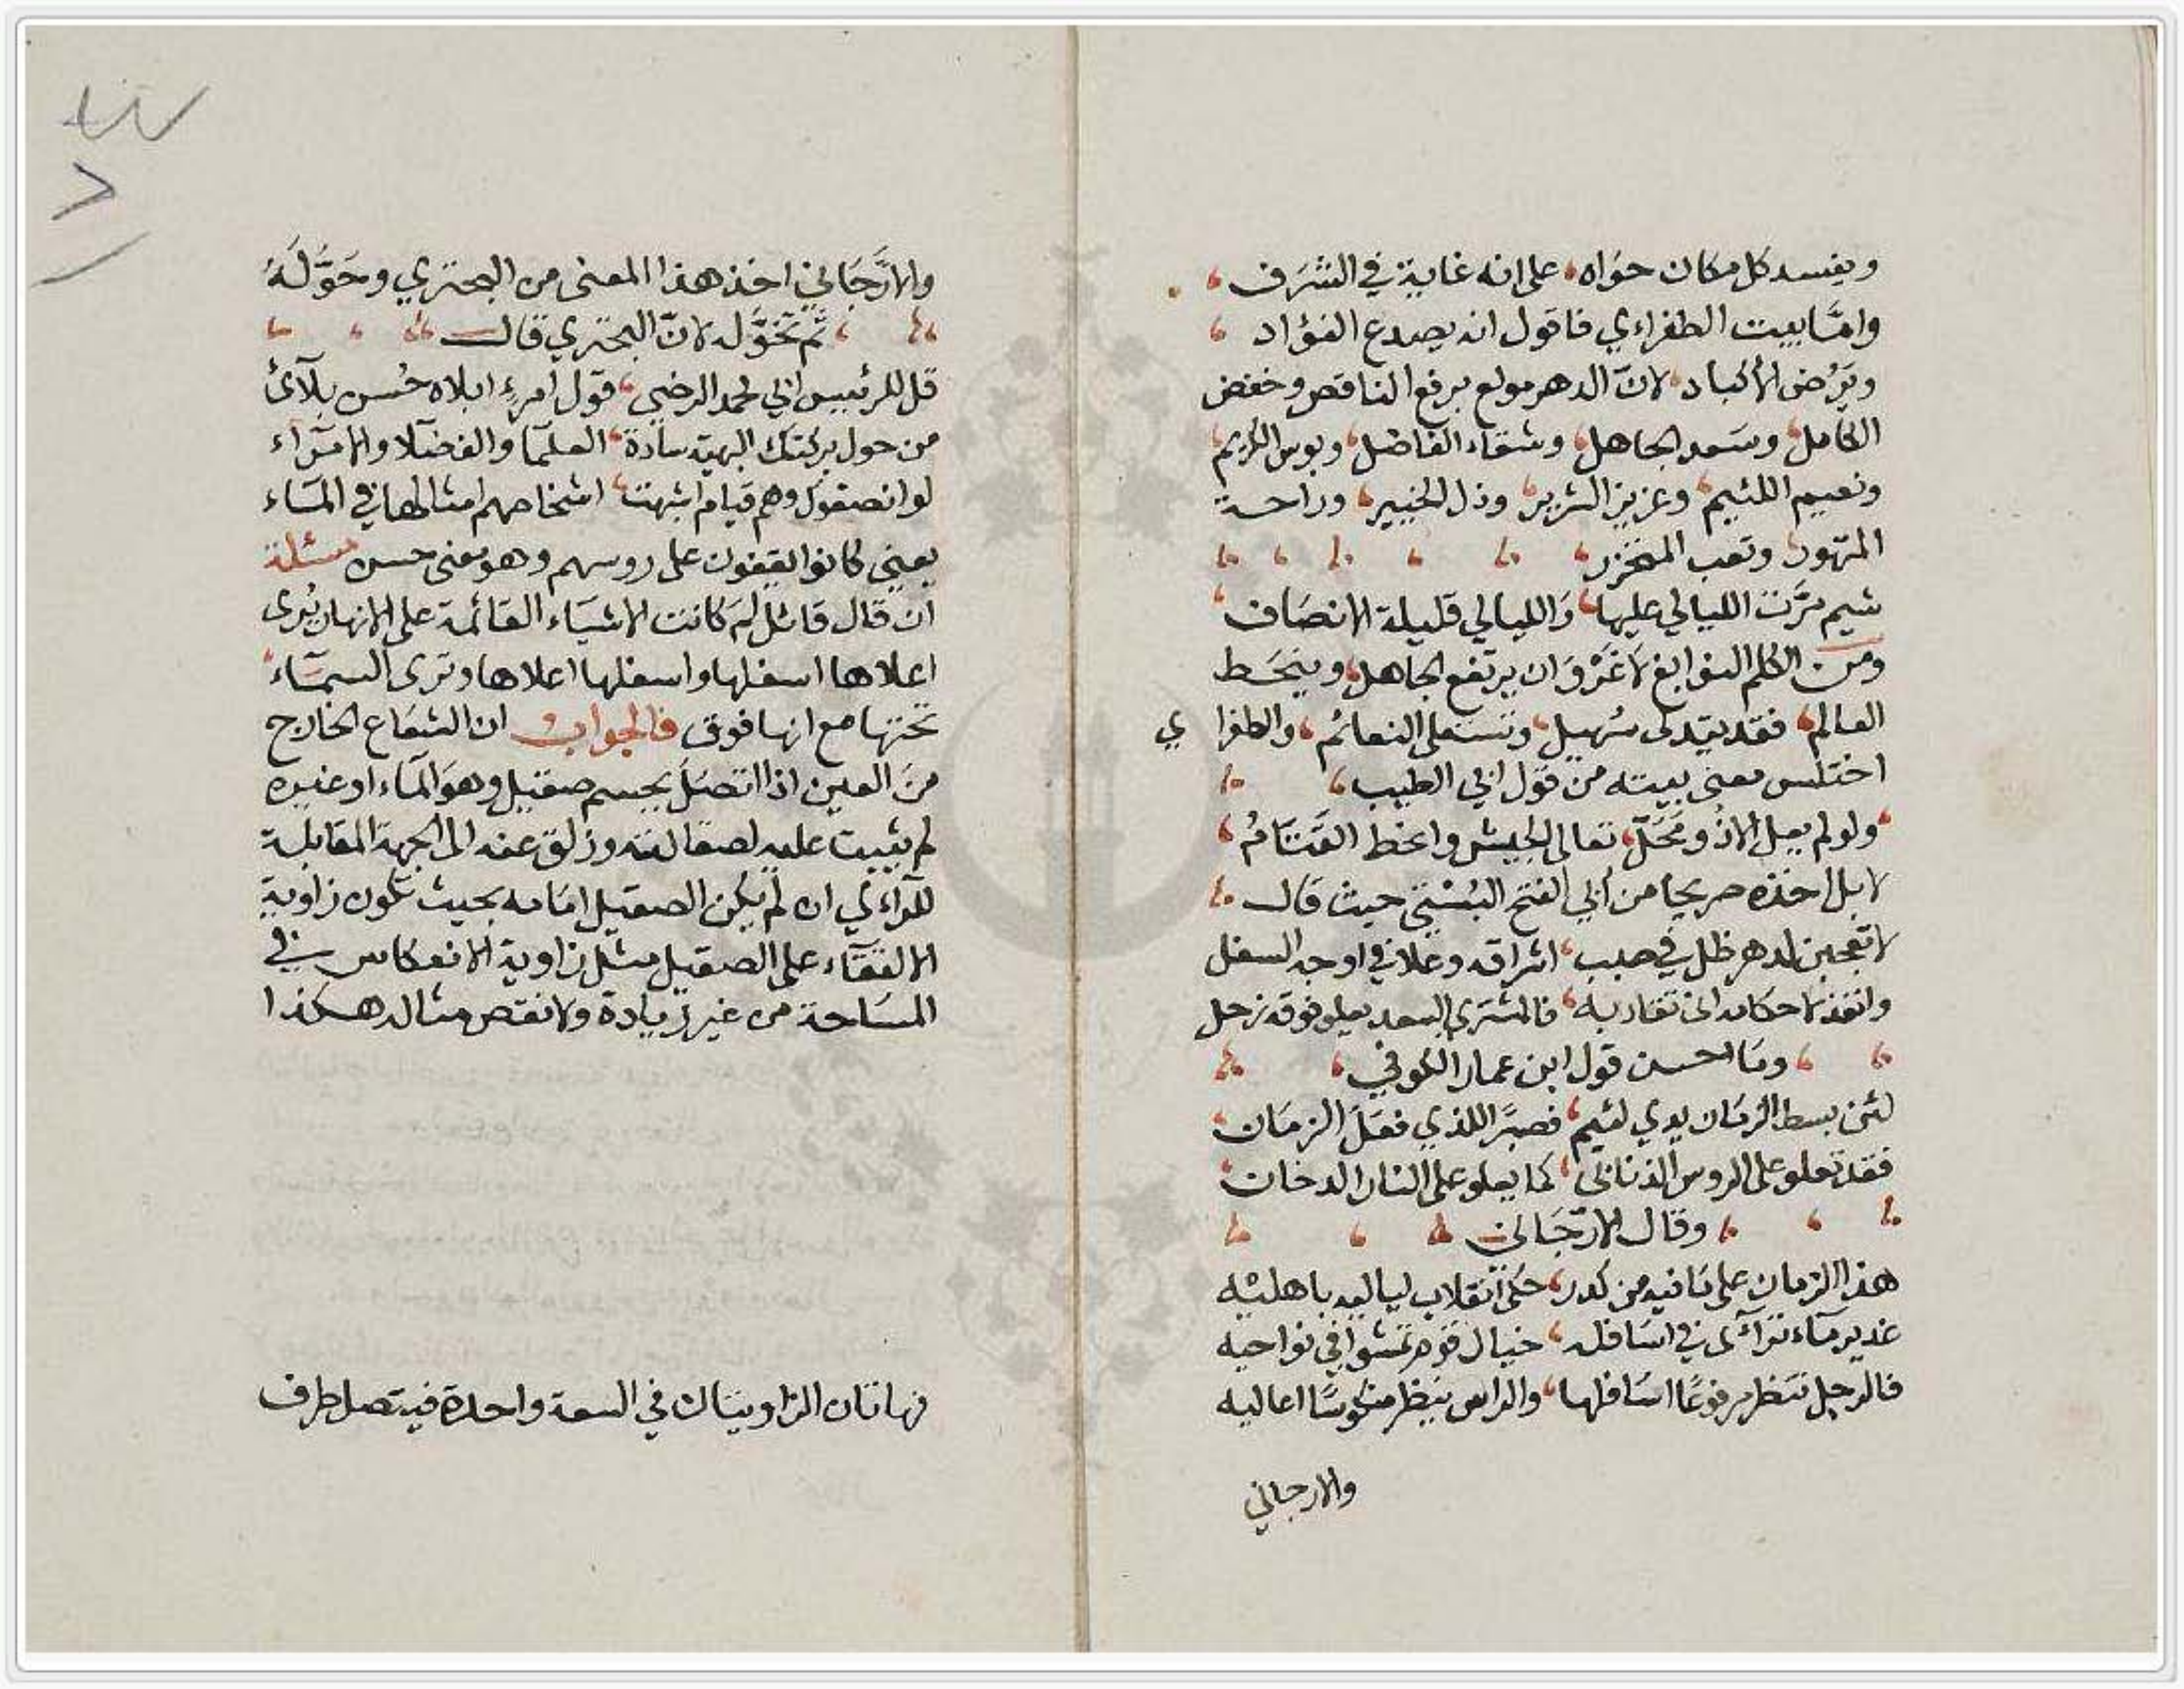 ويفسد كل مكان حواه، على انه غاية في الشرف،
وامّا بيت الطغراءي فاقول انه يصدع الفؤاد،
ويَرُض الأكباد، لانّ الدهر مولع برفع الناقص وخفض
الكامل، وسَعد الجاهل، وشقاء الفاضل، وبوس الكريم،
ونعيم اللئيم، وعزيز الشرير، وذل الخبير، وراحة
المتهور، وتعب المتحزر،
شيم مرَّت الليالي عليها، وَالليالي قليلة الانصَاف،
ومن الكلم النوابغ لاَ غَرْوَ ان يرتفع الجاهل، وينحَط
العالم، فقد يتدلى سُهيل، وتستعلى النعائم، والطغرا ي
اختلس معنى بيته من قول ابي الطيب،
ولو لم يعل الاذُو مَحَلٍّ، تعالى الجيش وانحط القَتَامُ،
لا بل اخذه صريحا من أبي الفتح البُسْتي حيث قال
لا تعجبن لدهر ظل في صبب، اشراقه وعلا في اوجه السفل
وانقذ لاحكامه انى تقاد به، فالمشتري السعد يعلو فوقه زحل
، ومَا احسن قول ابن عمار الكوفي،
لئن بسط الزمَان يدي لئيم، فصبرًا للذي فعَلَ الزمَان،
فقد تعلو على الروس الذنابى، كما يعلو على النار الدخان،
وقال الارّجَاني
هذا الزمان على مَا فيه من كدر، حكى انقلاب لياليه باهليه
غدير مآء ترآءى في اسَافله، خيال قوم تمشوا في نواحيه
فالرجل تنظر مرفوعًا اسَافلها، والراس ينظر منكوسًا اعاليه
والارجاني
والارّجَاني اخذ هذا المعنى من البحتري وحَوَّلَهُ
، ثم تخوَّله لانّ البحتري قال
قل للرئيس ابي محمد الرضي، قول أمرءٍ ابلاه حُسن بلآئ
من حول بركتك البهية سادة، العلمَا والفضلا والامَرَاء
لو انصفوك وهم قيام اشبهت، اشخاصهم امثالها في المَاء
يعني كانوا يقفون على روسهم وهو معنى حسن مسئلة
ان قال قائل لِمَ كانت الاشيَاء القائمة على الانهار يُرى
اعلاها اسفلها واسفلها اعلاها وترى السمَآء،
تحتها مع انها فوق فالجواب ان الشعَاع الخارج
منَ العين اذا اتصَلَ بجسم صقيل وهوَ المآء او غيره
لم يثبت عليه لصقالته وزلق عنه الى الجهة المقابلة
للرآءي ان لم يكن الصقيل امَامه بحيث تكون زاوية
الالتقآء على الصقيل مثل زاوية الانعكاس في
المسَاحة من غير زيادة ولا نقص مثاله هكذا
فهاتان الزاويتان في السعة واحدة فيتصل طرف